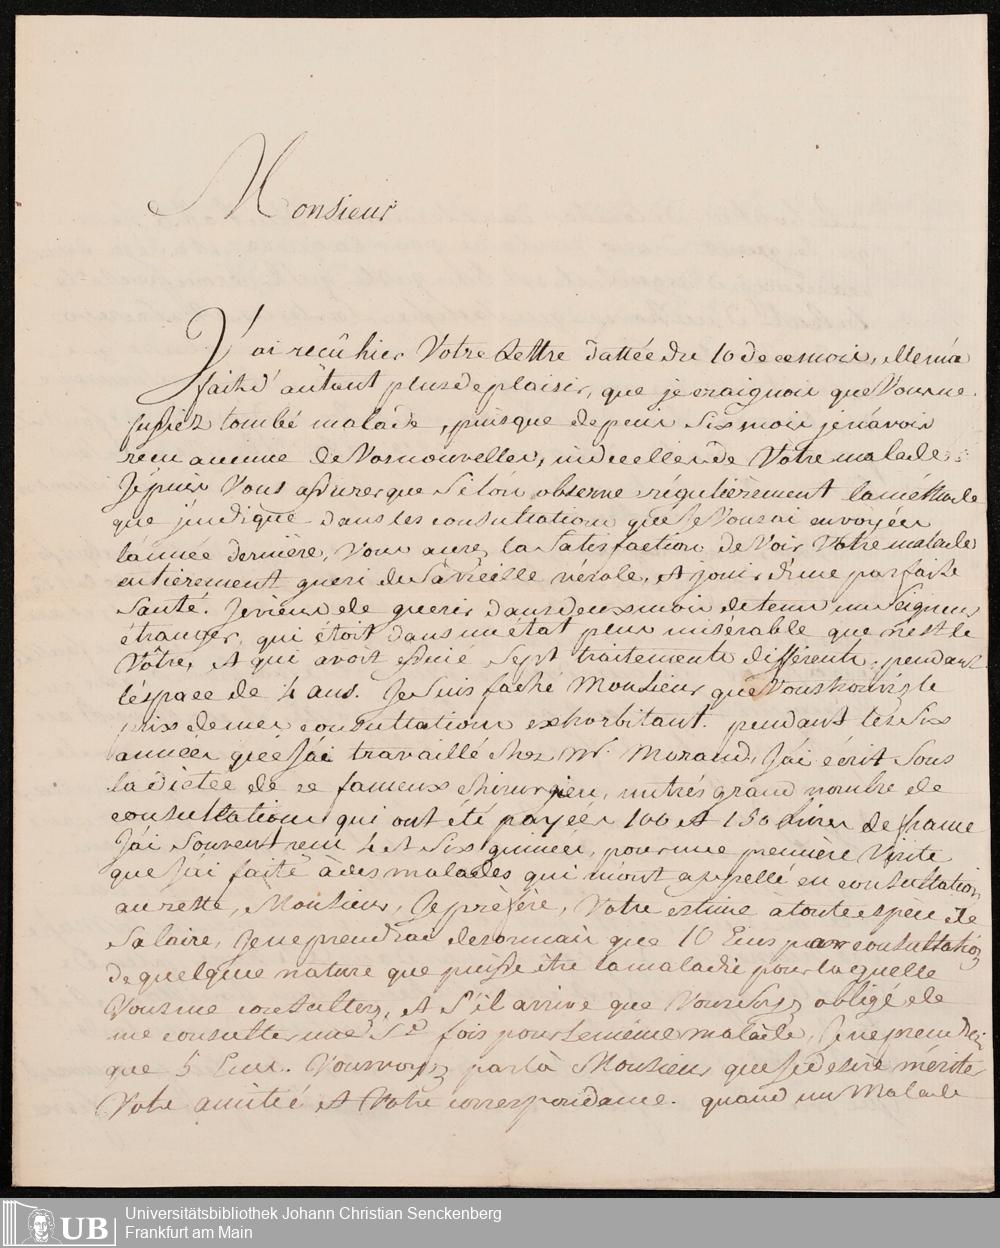 Monsieur
J'ai reçû hier Votre Lettre dattée du 10 de ce mois, elle m'a
fait d'aûtant plus de plaisir, que je craignois que Vous ne
fussiez tombé malade, puisque depuis Six mois je n'avois
recu aucune de Vos nouvelles, ni de celles de Votre malade.
Je puis Vous assurer que Si l'on observe régulièrement la méthode
que j'indique dans les consultations que Je Vous ai envoyées
l'année dernière, Vous aurez la Satisfaction de Voir Votre malade
entièrement gueri de Sa Vieille vérole, et jouir d'une parfaite
Santé. Je viens de guerir dans deux mois de tems un Seigneur
étranger, qui étoit dans un état plus misérable que n'est le
Vôtre, et qui avoit essuié Sept traitements différents, pendant
l'éspace de 4 ans. Je Suis faché Monsieur que Vous trouviez le
prix de mes consultations exhorbitant. pendant les Six
années que J'ai travaillé chez Mr. Morand, J'ai écrit Sous
la dictée de ce fameux chirurgien, un très grand nombre de
consultations qui ont été payées 100 et 150 livres de france
J'ai Souvent recu 4 et Six guinées, pour une première Visite
que J'ai faitte à des malades qui m'ont appellé en consultation,
au reste, Monsieur, Je préfère, Votre estime à toute espèce de
Salaire, Je ne prendrai desormais que 10 Ecus par consultation
de quelque nature que puisse être la maladie pour laquelle
Vous me consultez, et S'il arrive que Vous Soyez obligé de
me consulter une 2e fois pour le même malade, Je ne prendrai
que 5 Ecus. Vous voyez par là Monsieur que Je desire mériter
Votre amitié et Votre correspondance. quand un Malade
UB
Universitätsbibliothek Johann Christian Senckenberg
Frankfurt am Main